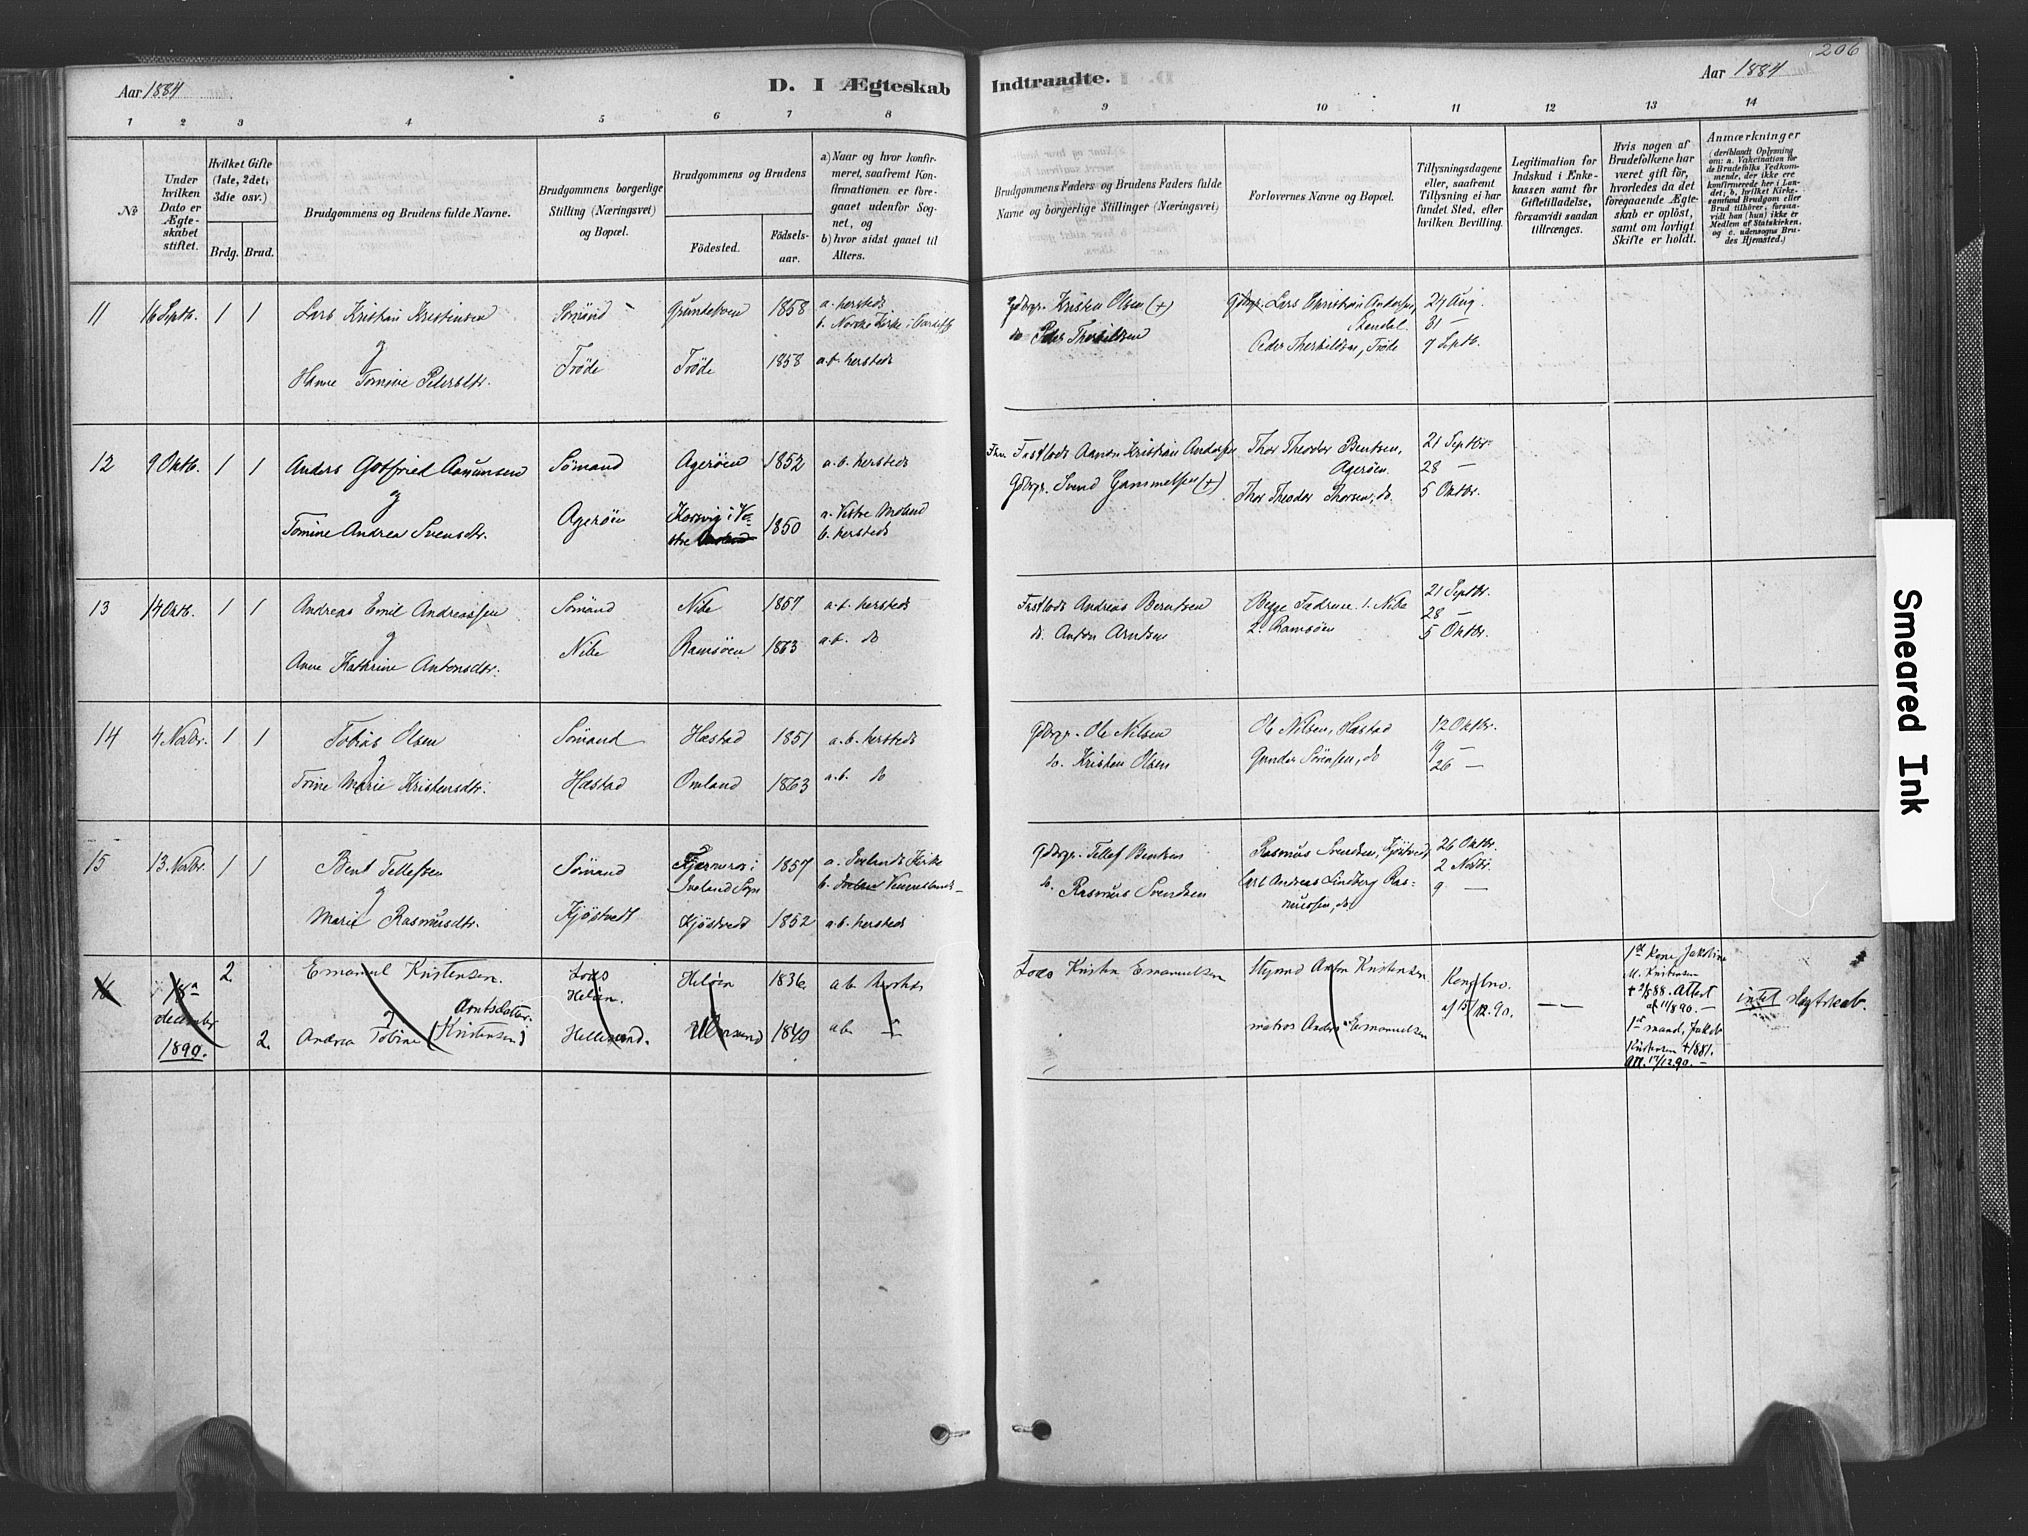 206
Aar 1884
D. I Ægteskab
Indtraadte.
Aar 1884
1 2 3 4 5 6 7 8
9 10 11 12 13 14
No
Under
hvilken
Dato er
Ægte-
skabet
stiftet.
Hvilket Gifte
(1ste, 2det,
3die osv.)
Brdg. Brud.
Brudgommens og Brudens fulde Navne.
Brudgommens borgerlige
Stilling (Næringsvei)
og Bopæl.
Brudgommens og Brudens
Födested.
Födsels-
aar.
a) Naar og hvor konfir-
meret, saafremt Kon-
firmationen er fore-
gaaet udenfor Sog-
net, og
b) hvor sidst gaaet til
Alters.
Brudgommens Faders og Brudens Faders fulde
Navne og borgerlige Stillinger (Næringsvei)
Forlovernes Navne og Bopæl.
Tillysningsdagene
eller, saafremt
Tillysning ei har
fundet Sted, efter
hvilken Bevilling.
Legitimation for
Indskud i Enke-
kassen samt for
Giftetilladelse,
forsaavidt saadan
tiltrænges.
Hvis nogen af
Brudefolkene har
været gift för,
hvorledes da det
foregaaende Ægte-
skab er oplöst,
samt om lovligt
Skifte er holdt.
Anmærkninger
(deriblandt Oplysning
om: a. Vakcination for
de Brudefolks Vedkom-
mende, der ikke ere
konfirmerede her i Lan-
det; b. hvilket Kirke-
samfund Brudgom eller
Brud tilhörer, forsaa-
vidt han (hun) ikke er
Medlem af Statskirken,
og c. udensogns Bru-
des Hjemsted.)
11 16 Septb. 1 1 Lars Kristian Kristensen Sömand 1858 a. hersteds
b. Norske Kirke i Cardiff
og
Hanne Tomine Pedersdtr. Tröde Tröde 1858 a.b. hersteds
Gdbrgr. Kristen Olsen (+) Gdbrgr. Lars Christian Andersen, 24 Aug.
Stendal. 31 —
do Peder Therkildsen Peder Therkildsen, Tröde 7 Septb.
12 9 Oktb. 1 1 Anders Gotfried Aanunsen Sömand Ageröen 1852 a.b. hersteds
og
Tomine Andrea Svensdtr. Ageröen Korsvig i Ve-
stre 1850 a. Vestre Moland
b. hersteds
Fastlods Aanon Kristian Andersen Thor Theodor Bentsen, 21 Septbr.
Ageröen 28 —
Gdbrgr. Svend Gammelsen (+) Thor Theodor Thorsen, do. 5 Oktbr.
13 14 Oktb. 1 1 Andreas Emil Andreassen Sömand Nibe 1857 a.b. hersteds
og
Anne Kathrine Antonsdtr. Nibe Ramsöen 1863 a.b. do
Fastlods Andreas Berntsen Begge Fædrene. 1. Nibe 21 Septbr.
2. Ramsöen 28 —
do. Anton Arntsen 5 Oktbr.
14 4 Novbr. 1 1 Tobias Olsen Sömand Hæstad 1851 a.b. hersteds
og
Trine Marie Kristensdtr. Hæstad Omland 1863 a.b. do
Gdbrgr. Ole Nilsen Ole Nilsen, Hæstad 12 Oktbr.
do. Kristen Olsen Gunder Sörensen, do 19 —
26 —
15 13 Novbr. 1 1 Bent Tellefsen Sömand i
Iveland Sgn 1857 a. Ivelands Kirke
b.
og
Marie Rasmusdtr. Kjöstvedt Kjöstvedt 1852 a.b. hersteds
Gdbrgr. Tellef Bentsen Rasmus Svendsen, Kjöstvedt 26 Oktbr.
2 Novbr.
do. Rasmus Svendsen Carl Andreas Lindberg Ras- 9 —
mussen, do
16 18de 2. Emanuel Kristensen. Lods
Helöen. Helöen 1836 ab hersteds
december
1890.
og Arntsdatter
2. Andrea Tobine (Kristensen) Hellesund. Ulvesund 1849 ab —
Lods Kristen Emanuelsen Styrmd Anton Kristensen Kongl. bev.
af 15/12.90.
matros Anders Emanuelsen
1ste Kone Jakobine
M. Kristensen
+ 2/5 88. Attest
af 11/8 90. —
1ste mand, Jakob
Kristensen + 1881.
Att. 17/12 90. —
intet slægtskab.
Smeared Ink